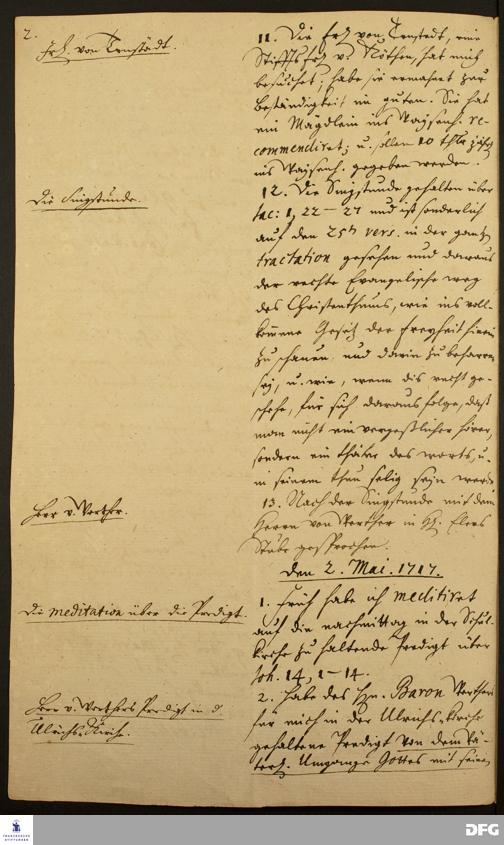 2.
Frl. von Ernstädt.
11. Die Frl. von Ernstedt, eine
Stifftsfrl. v. Köthen, hat mich
besuchet, habe sie ermahnet zur
Beständigkeit im guten. Sie hat
ein Mägdlein ins Waysenh. re-
commendiret; u. sollen 20 thlr jährl.
ins Waysenh. gegeben werden.
Die Singstunde.
12. Die Singstunde gehalten über
Jac: 1, 22–27 und ist sonderlich
auf den 25ten vers. in der gantzen
tractation gesehen und daraus
der rechte Evangelische weg
des Christenthums, wie ins voll-
kommene Gesetz der Freyheit hinein
zu schauen und darin zu beharren
sey, u. wie, wenn dis recht ge-
schehe, für sich daraus folge, daß
man nicht ein vergeßlicher hörer,
sondern ein thäter des worts, u.
in seinem thun selig seyn werde.
Herr v. Werther.
13. Nach der Singstunde mit dem
Herrn von Werther in H. Elers
Stube gesprochen.
Den 2. Mai. 1717.
Die meditation über die Predigt.
1. Früh habe ich meditiret
auf die nachmittag in der Schul-
kirche zu haltende Predigt über
Joh. 14, 1–14.
Herr v. Werthers Predigt in d.
Ulrichs-Kirche.
2. habe des Hn. Baron Werthern
für mich in der Ulrichs-Kirche
gehaltene Predigt von dem Vä-
terl. Umgange Gottes mit seinen
FRANCKESCHE STIFTUNGEN
DFG